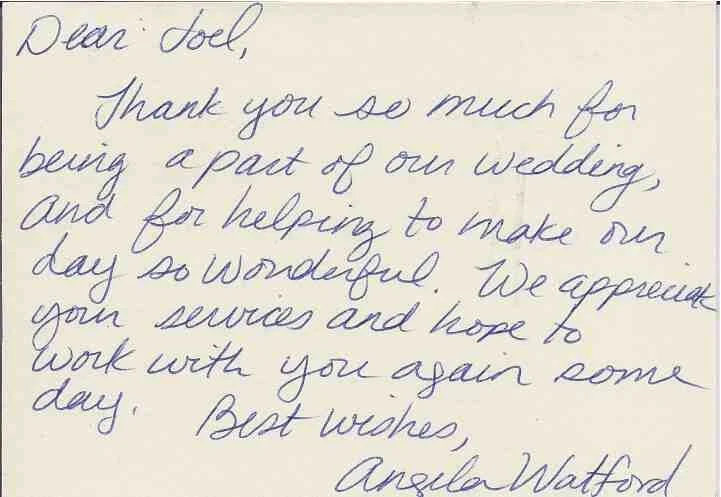 Dear Joel,
Thank you so much for
being a part of our wedding,
and for helping to make our
day so wonderful. We appreciate
your services and hope to
work with you again some
day. Best wishes,
Angela Watford